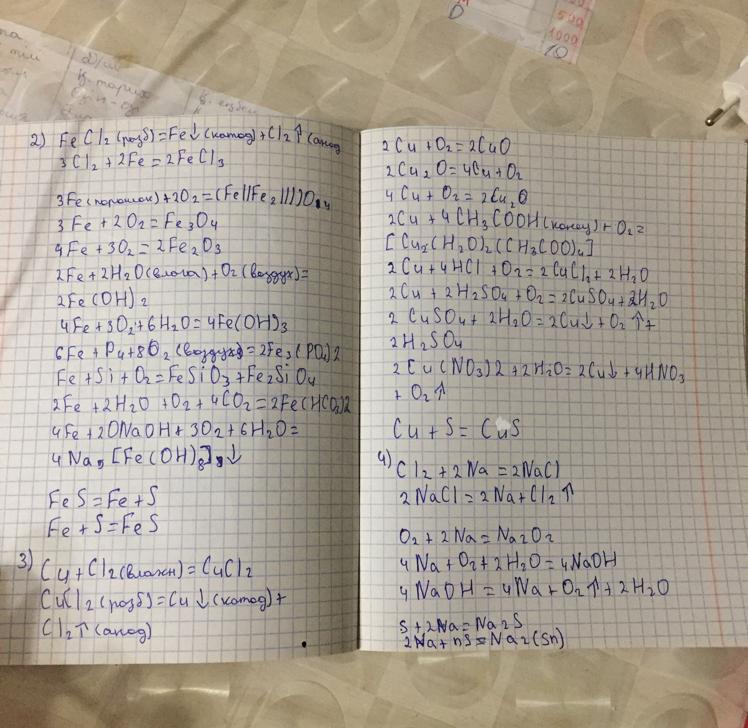 D
500
1000
10
2) FeCl2 (розб) = Fe↓ (катод) + Cl2↑ (анод
3Cl2 + 2Fe = 2FeCl3
3Fe (порошок) + 2O2 = (Fe||Fe2|||)O4
3Fe + 2O2 = Fe3O4
4Fe + 3O2 = 2Fe2O3
2Fe + 2H2O (влага) + O2 (воздух) =
2Fe(OH)2
4Fe + 3O2 + 6H2O = 4Fe(OH)3
6Fe + P4 + 8O2 (воздух) = 2Fe3(PO4)2
Fe + Si + O2 = FeSiO3 + Fe2SiO4
2Fe + 2H2O + O2 + 4CO2 = 2Fe(HCO3)2
4Fe + 20NaOH + 3O2 + 6H2O =
4Na5[Fe(OH)8]↓
FeS = Fe + S
Fe + S = FeS
3) Cu + Cl2 (влажн) = CuCl2
CuCl2 (розб) = Cu↓ (катод) +
Cl2↑ (анод)
2Cu + O2 = 2CuO
2Cu2O = 4Cu + O2
4Cu + O2 = 2Cu2O
2Cu + 4CH3COOH (конец) + O2 =
[Cu2(H2O)2(CH3COO)4]
2Cu + 4HCl + O2 = 2CuCl2 + 2H2O
2Cu + 2H2SO4 + O2 = 2CuSO4 + 2H2O
2CuSO4 + 2H2O = 2Cu↓ + O2↑ +
2H2SO4
2Cu(NO3)2 + 2H2O = 2Cu↓ + 4HNO3
+ O2↑
Cu + S = CuS
4) Cl2 + 2Na = 2NaCl
2NaCl = 2Na + Cl2↑
O2 + 2Na = Na2O2
4Na + O2 + 2H2O = 4NaOH
4NaOH = 4Na + O2↑ + 2H2O
S + 2Na = Na2S
2Na + nS = Na2(Sn)